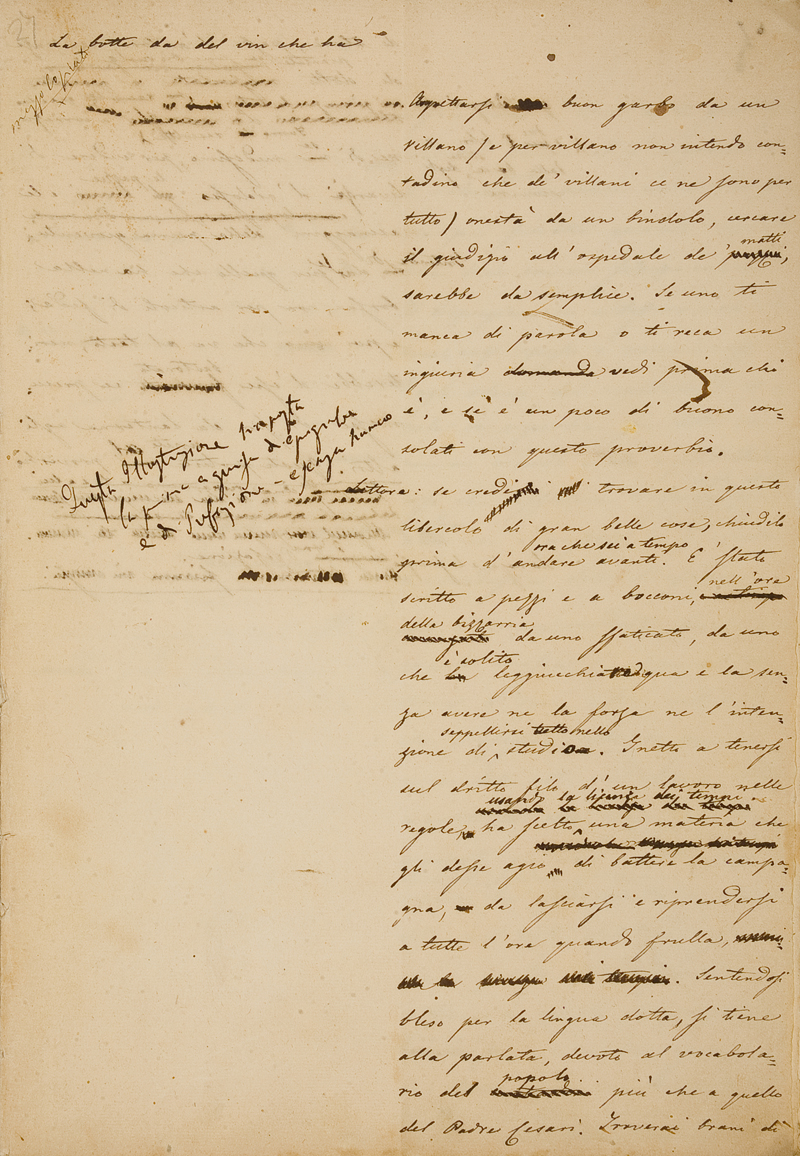 27
La botte da del vin che ha
mezzo copiato
Aspettarsi buon garbo da un
villano (e per villano non intendo con=
tadino che de' villani ce ne sono per
tutto) onestà da un bindolo, cercare
matti
il giudizio all'ospedale de' pazzi,
sarebbe da semplice. Se uno ti
manca di parola o ti reca un
ingiuria domanda vedi prima chi
è, e se è un poco di buono con=
solati con questo proverbio.
Questa Illustrazione trasporta
la prima a guisa di epigrafe
e di Prefazione - e senza numero
Lettore: se credi di trovare in questo
libercolo di gran belle cose, chiudilo
ora che sei a tempo
prima d'andare avanti. È stato
nell'ora
scritto a pezzi e a bocconi,
della bizzarria
da uno sfaticato, da uno
è solito
che ha leggiucchiare di qua e là sen=
za avere ne la forza ne l'inten=
seppellirsi tutto nello
zione di studio. Inetto a tenersi
sul dritto filo d'un lavoro nelle
usando la licenza dei tempi
regole, ha scelto una materia che
gli desse agio di battere la campa=
gna, da lasciarsi e riprendersi
a tutte l'ore quando frulla,
. Sentendosi
bleso per la lingua dotta, si tiene
alla parlata, devoto al vocabola=
popolo
rio del più che a quello
del Padre Cesari. Troverai brani di